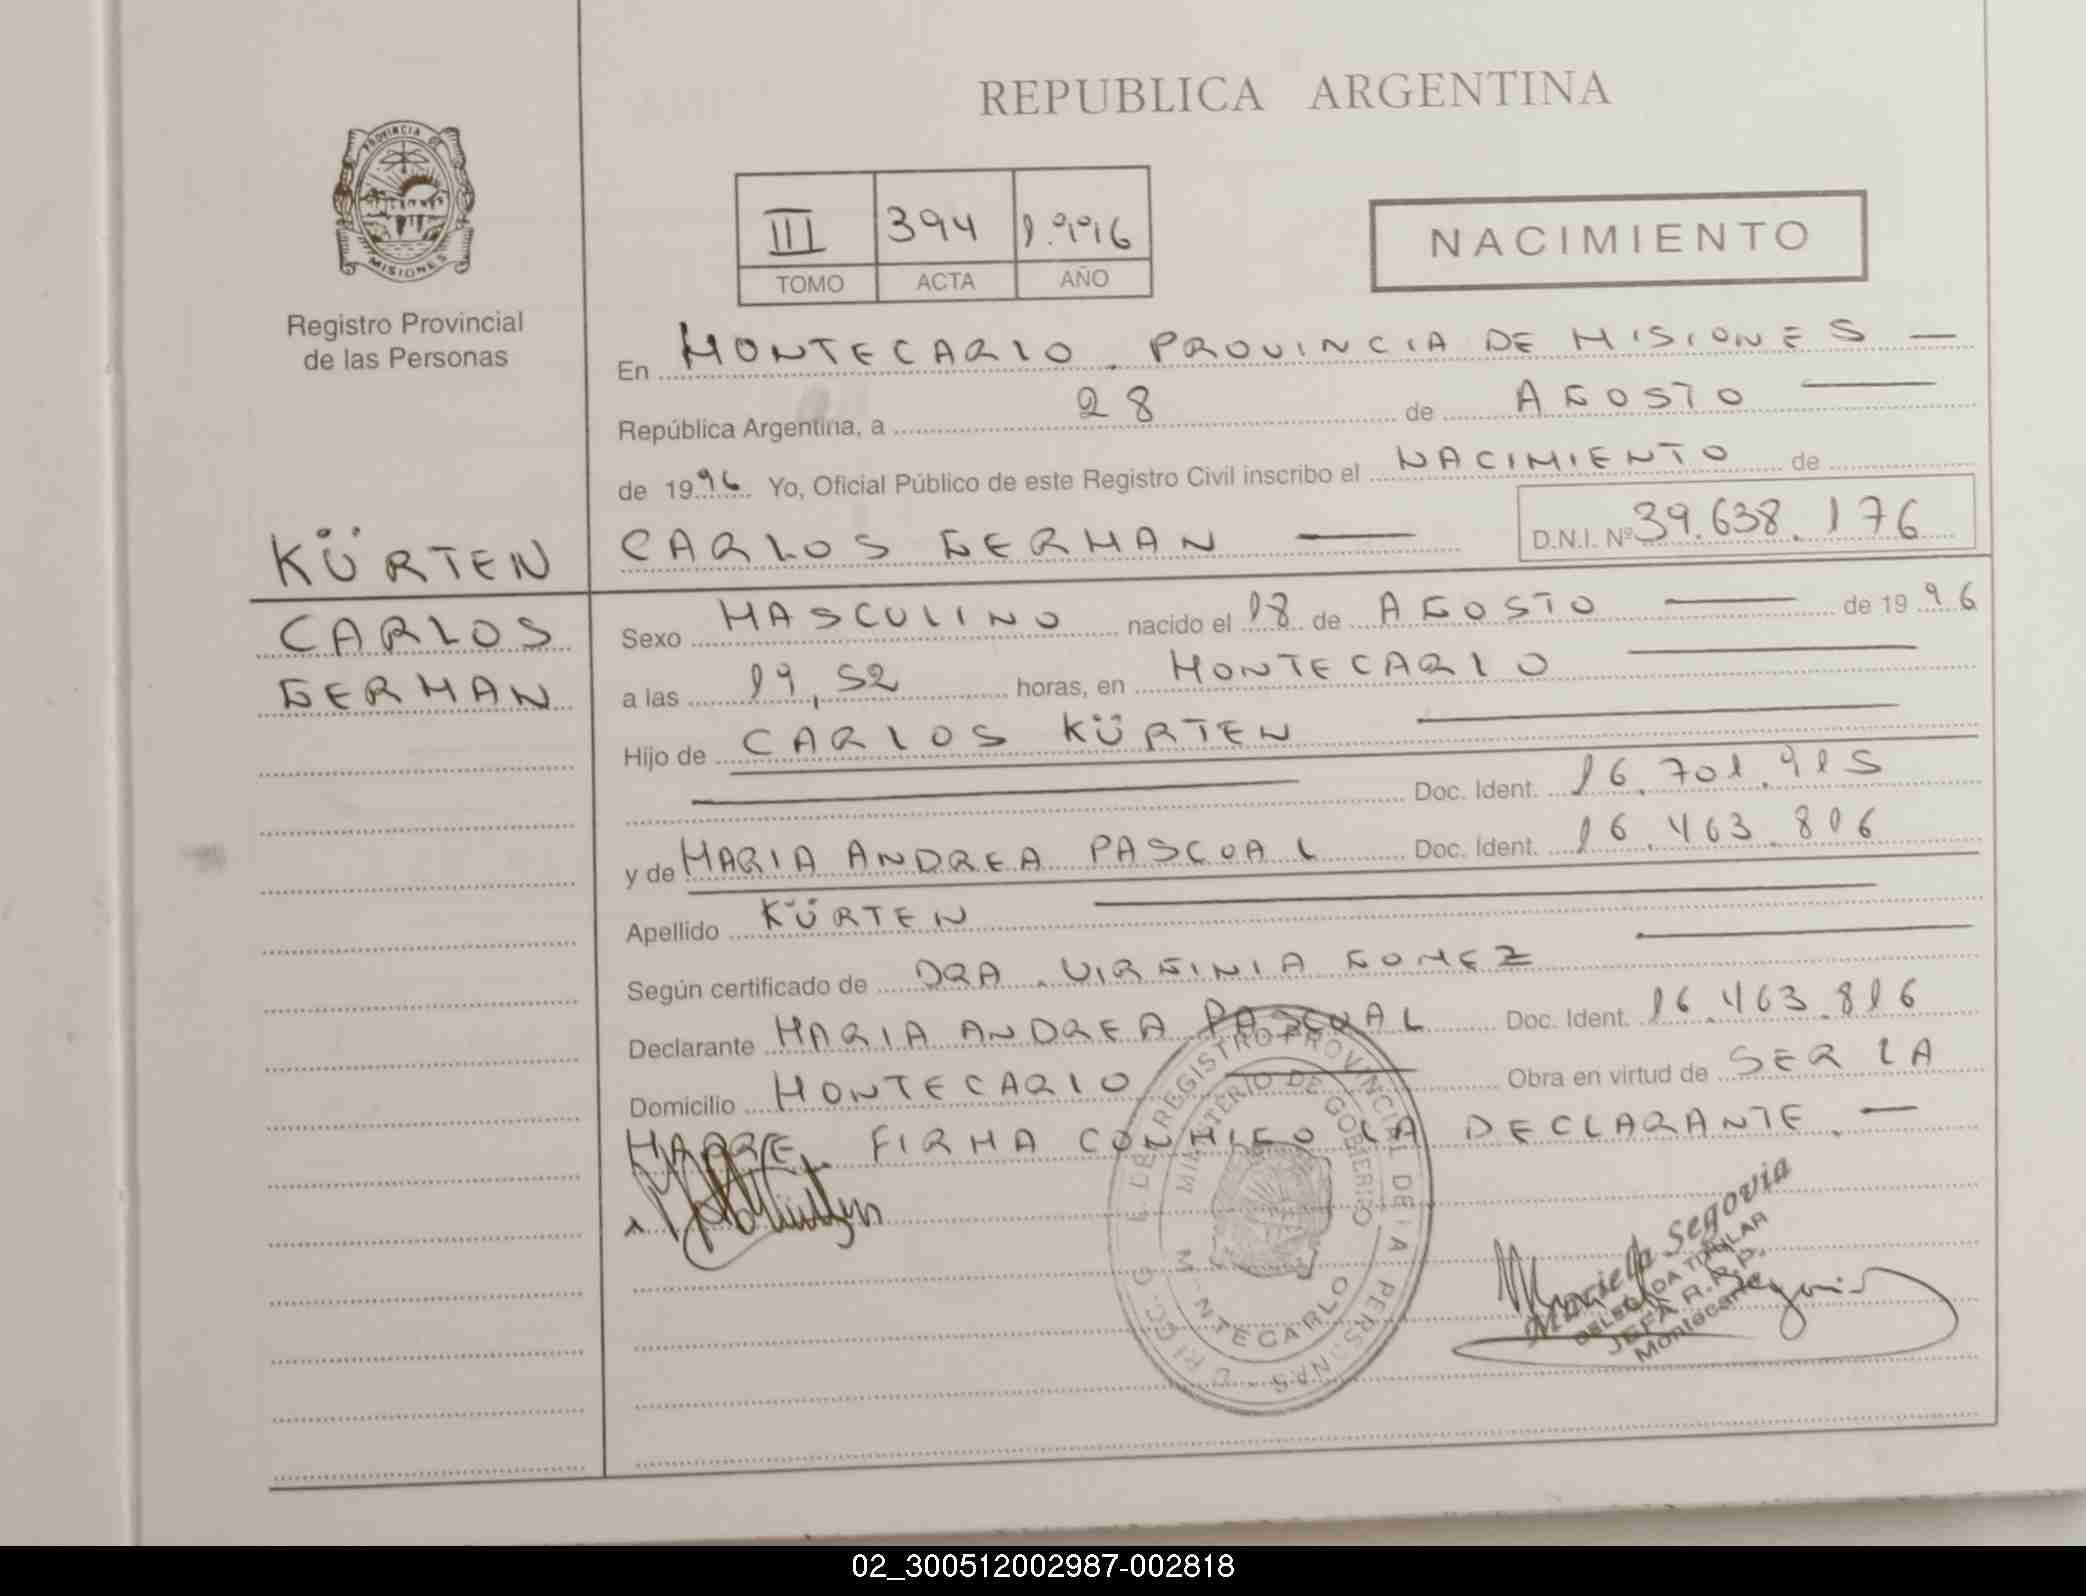 REPUBLICA ARGENTINA
PROVINCIA DE
MISIONES
Registro Provincial
de las Personas
III 394 1.996
TOMO ACTA AÑO
NACIMIENTO
En MONTECARLO. PROVINCIA DE MISIONES —
República Argentina, a 28 de AGOSTO —
de 1996 Yo, Oficial Público de este Registro Civil inscribo el NACIMIENTO de
KÜRTEN CARLOS GERMAN — D.N.I. Nº 39.638.176
CARLOS
GERMAN
Sexo MASCULINO nacido el 18 de AGOSTO — de 1996
a las 19,52 horas, en MONTECARLO —
Hijo de CARLOS KÜRTEN —
— Doc. Ident. 16.701.915
y de MARIA ANDREA PASCUAL Doc. Ident. 16.463.816
Apellido KÜRTEN —
Según certificado de DRA. VIRGINIA GOMEZ —
Declarante MARIA ANDREA PASCUAL Doc. Ident. 16.463.816
Domicilio MONTECARLO — Obra en virtud de SER LA
MADRE. FIRMA CONMIGO LA DECLARANTE. —
REGISTRO PROVINCIAL DE LA PERSONAS
MINISTERIO DE GOBIERNO
MONTECARLO
Mariela Segovia
DELEGADA TITULAR
JEFA R.R.P.
Montecarlo
02_300512002987-002818